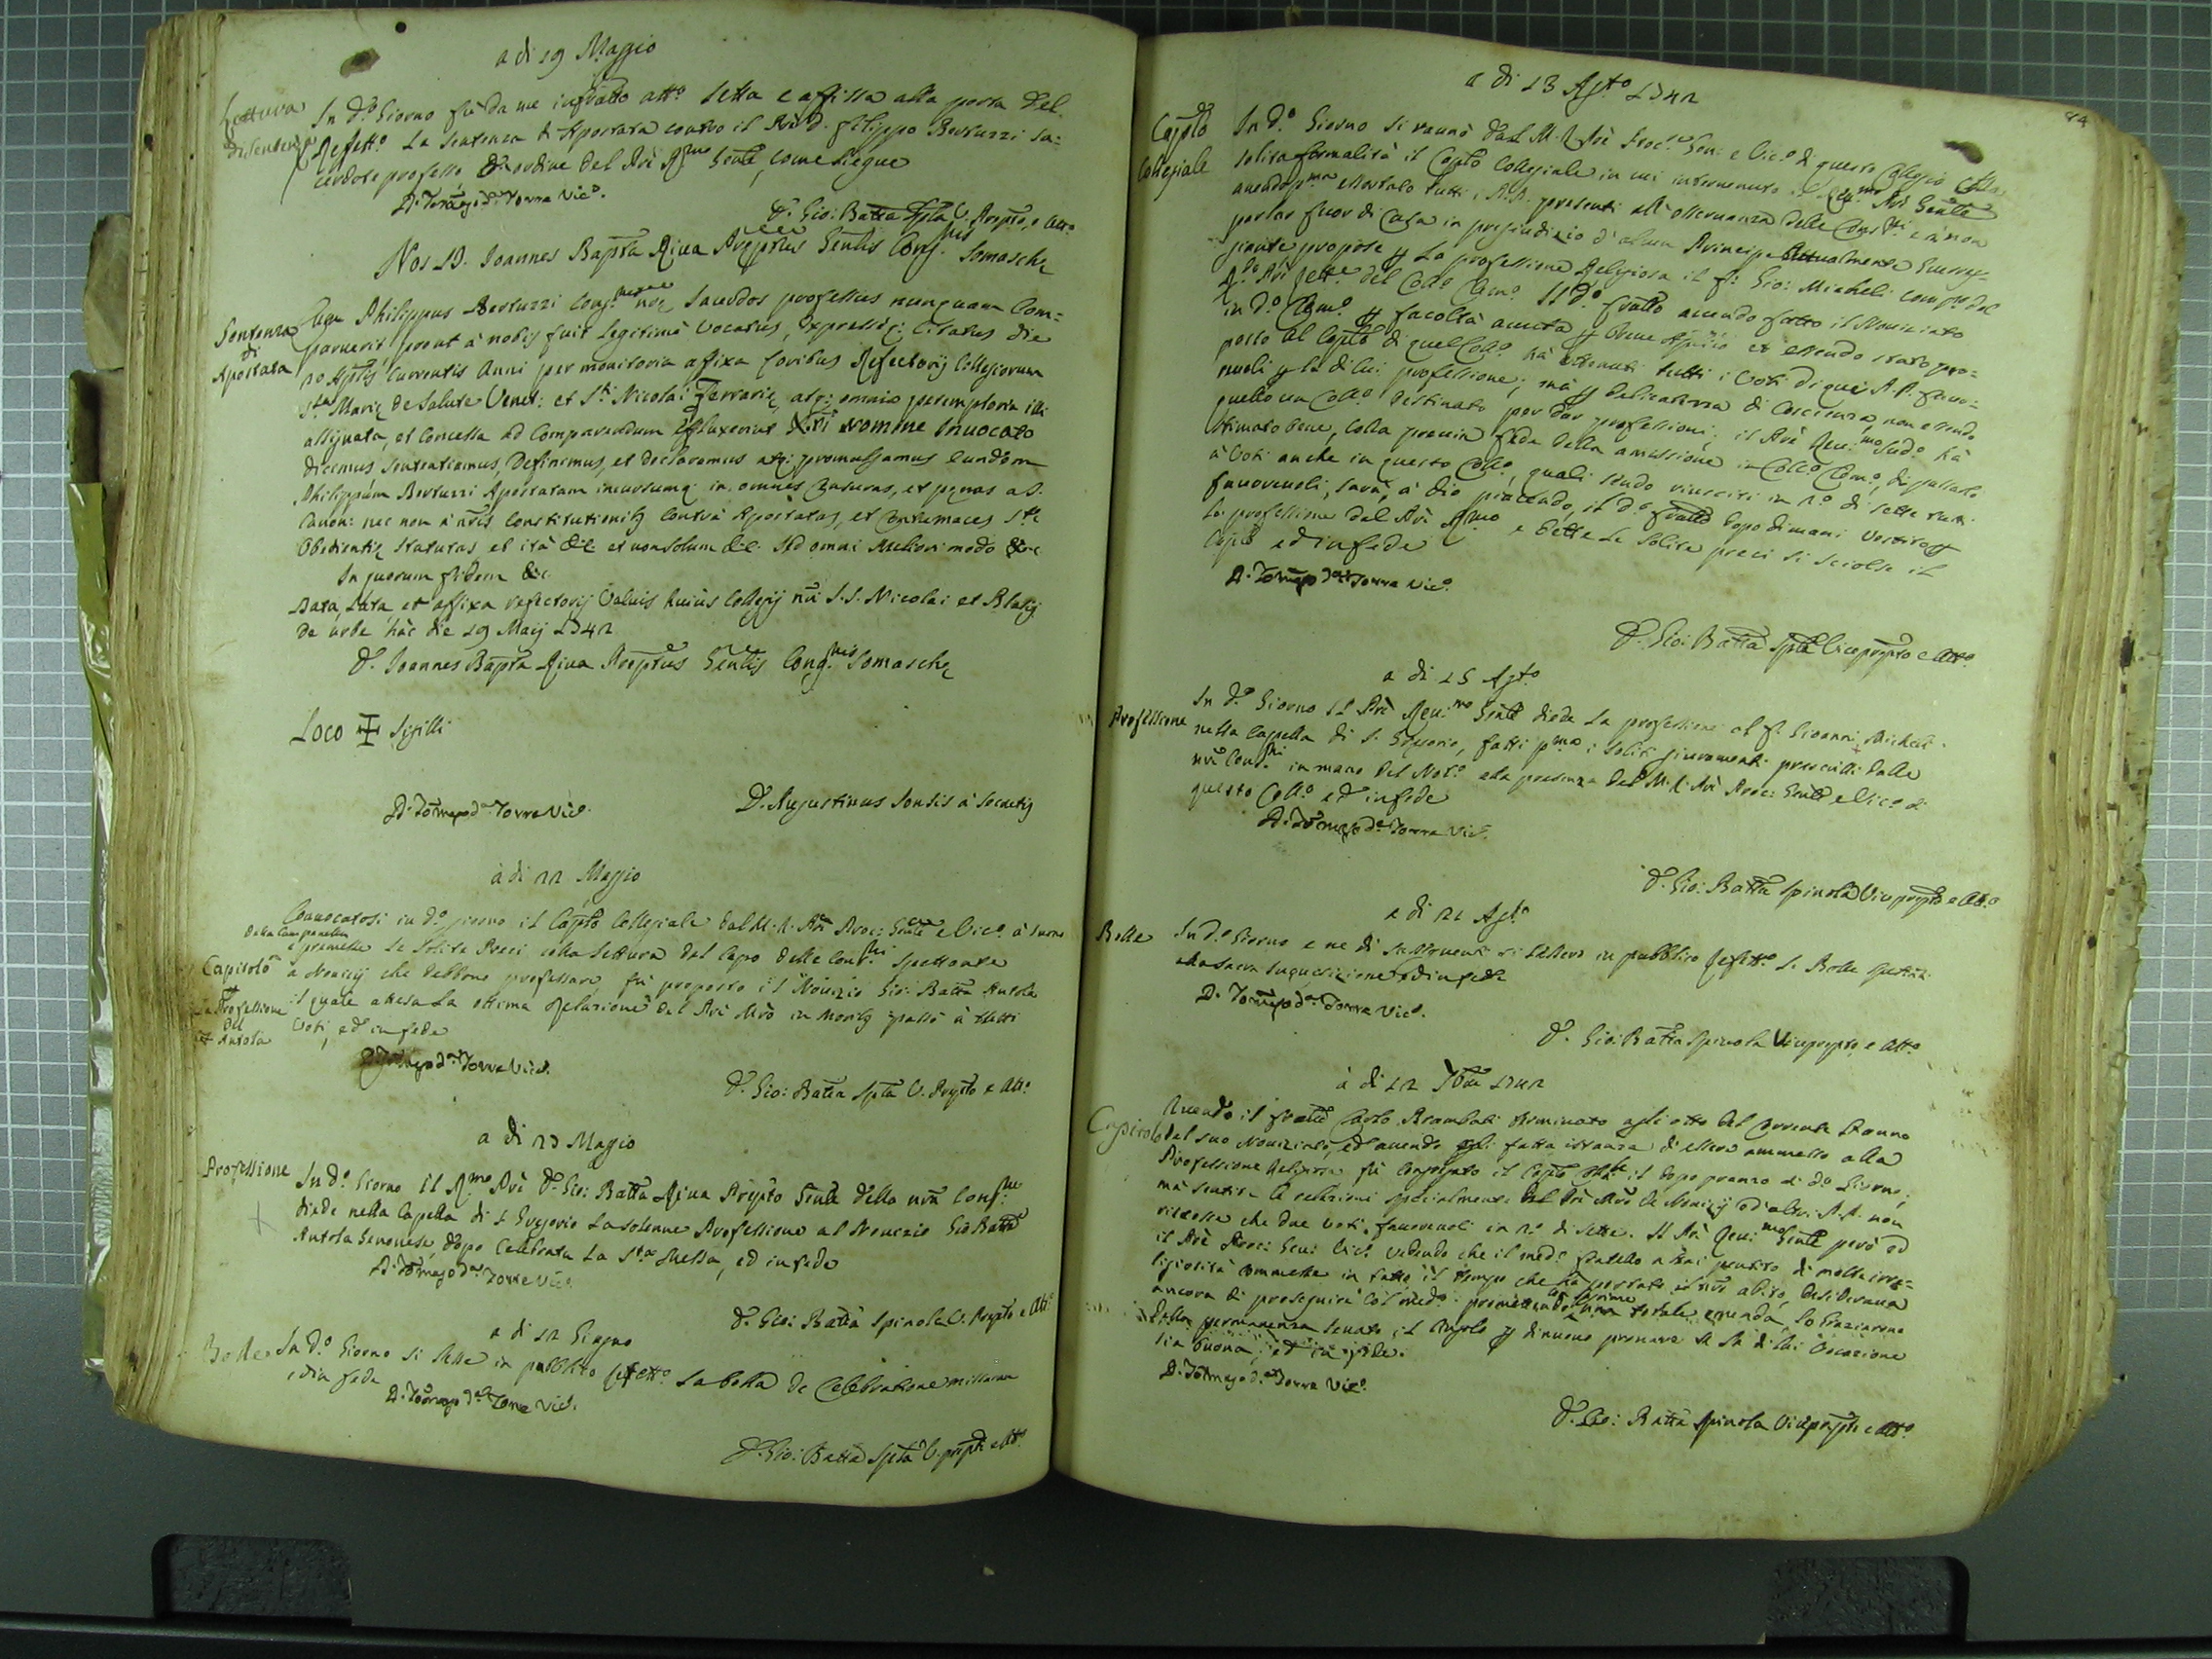 a di 19 Maggio
Lettura di sentenza
In d.º Giorno fù da me infratto att.º letta e affissa alla porta del
Refett.º La sentenza di Apostata contro il Prẽ D. Filippo Bertuzzi sa:
cerdote professo d'ordine del Prẽ Rmo Gentẽ, come siegue
D. Tomaso d.ª Torre Vic.º
D. Gio: Batta Spla V. Prepto, e Att.º
Nos D. Joannes Bapta Riva Prepptus Genlis Cong.nis Somaschę
Sentenza di Apostata
Cum Philippus Bertuzzi Cong.nis nrę Sacerdos professus nunquam Com=
paruerit prout à nobis fuit legitimè vocatus, expressèq; Citatus die
Aplis Currentis Anni per monitoria affixa foribus Refectorij Collegiorum
S.tæ Marię de Salute Venet: et S.ti Nicolai Ferrarię, atq; omnia peremptoria illi
assignata, et Concessa ad Comparendum effluxerint Xti Nomine Invocato
dicimus sententiamus, definimus, et declaramus atq; promulgamus eundem
Philippum Bertuzzi Apostatam incursumq; in omnes Censuras, et pęnas a S.
Canon: nec non à nris Constitutionibꝰ Contrà Apostatas, et Contumaces S.tę
Obedientię statutas et ità &c et non solum &c sed omni Meliori modo &c
In quorum fidem &c.
Data, Lata et affixa refectorij Valvis huius Collegij nri S.S. Nicolai et Blasij
de urbe hàc die 19 Maij 1742
D. Joannes Bapta Riva Prepptus Genlis Cong.nis Somaschę
Loco ✠ Sigilli
D. Tomaso d.ª Torre Vic.º
D. Augustinus a Secretis
à di 22 Maggio
Capitolo p la Professione del Antola
Convocatosi in d.º giorno il Capto Collegiale dal M. R. Prẽ Proc: Gentẽ e Vic.º à suono
della Campanella
e premesse le solite Preci colla lettura del Capo delle Cons.ni spettante
a Novizij che debbono professare, fù proposto il Novizio Gio: Batta Antola
il quale attesa la ottima relazione del Prẽ Mrõ in passò à tutti
Voti, ed in fede
D. Tomaso d.ª Torre Vic.º
D. Gio: Batta Spla V. Prepto e Att.º
a di 23 Maggio
Professione
In d.º Giorno il R.mo Prẽ D. Gio: Batta Riva Prepto Gentẽ della nra Cong.ne
diede nella Capella di S. Gregorio la solenne Professione al Novizio Gio Batta
Antola Genovese, dopo Celebrata la S.ta Messa, ed in fede
D. Tomaso d.ª Torre Vic.º
D. Gio: Batta Spinola V. Prepto e Att.º
a di 12 Giugno
Bolle
In d.º Giorno si lesse in pubblico refett.º la bolla de Celebratione missarum
, ed in fede
D. Tomaso d.ª Torre Vic.º
D. Gio: Batta Spla V. prepto e Att.º
84
a di 13 Agto 1742
Capto Collegiale
In d.º Giorno si raunò dal M. R. Prẽ Proc.re Gen: e Vic.º di questo Collegio colla
solita formalità il Capto Collegiale in cui intervenuto il Rev.mo Prẽ Gentẽ
avendo p.ma esortato tutti i P.P. presenti all'osservanza delle Cons.ni e à non
parlar fuor di Casa in pregiudizio d'alcun Principe attualmente Guerreg=
giante propose p La professione Religiosa il fr: Gio: Micheli
del Coll.º Clem.º Il d.º fratto avendo fatto il Noviziato
in d.º Clem.º p facoltà avuta p Breve et essendo stato pro=
posto al Capto di quel Coll.º hà ottenuti tutti i Voti di quei P.P. favo=
revoli p la di lui professione; mà p delicatezza di Coscienza, non essendo
quello un Coll.º destinato per dar professioni; il Prẽ Rev.mo sud.º hà
stimato bene, colla previa fede della amissione in Coll.º Clem.º, di passarlo
à Voti anche in questo Coll.º, quali sendo riusciti in n.º di sette tutti
favorevoli, sarà, à Dio piacendo, il d.º fratto dopo dimani vestito p
la professione dal Prẽ R.mo e dette le solite preci si sciolse il
Capto ed in fede
D. Tomaso d.ª Torre Vic.º
D. Gio: Batta Spla Viceprepto e Att.º
a di 15 Agto
Professione
In d.º Giorno il Prẽ Rev.mo Gentẽ diede la professione al fr. Giovanni Micheli
nella Capella di S. Gregorio, fatti p.ma i soliti giuramenti prescritti dalle
nrẽ Cons.ni in mano del Not.º alla presenza del M. R. Prẽ Proc: Gentẽ e Vic.º di
questo Coll.º ed in fede
D. Tomaso d.ª Torre Vic.º
D. Gio: Batta Spinola Viceprepto e Att.º
a di 21 Agto
Bolle
In d.º Giorno e ne di susseguenti si lessero in pubblico Refett.º le Bolle spettanti
alla Sacra Inquisizione ed in fede
D. Tomaso d.ª Torre Vic.º
D. Gio: Batta Spinola Viceprepto e Att.º
à di 12 7bre 1742
Capitolo
Avendo il fratto Carlo Brambati terminato agli otto del Corrente l'anno
del suo Noviziato, ed avendo egli fatta istanza d'essere ammesso alla
Professione Religiosa fù Congregato il Capto il dopo pranzo di d.º Giorno,
mà sentite le relazioni specialmente del Prẽ Mrõ de Novizij ed altri P.P. non
riscosse che due voti favorevoli in n.º di sette. Il Prẽ Rev.mo Gentẽ però ed
il Prẽ Proc: Gen: Vic.º vedendo che il med.º fratello assai pentito di molte irre=
ligiosità commesse in tutto il tempo che hà portato il nrõ abito, desiderava
ancora di proseguire col med.º promettendo una totale emenda, lo Graziarono
della permanenza levato il Angolo p di nuovo provare se la di lui Vocazione
sia buona, ed in fede.
D. Tomaso d.ª Torre Vic.º
D. Gio: Batta Spinola Viceprepto e Att.º